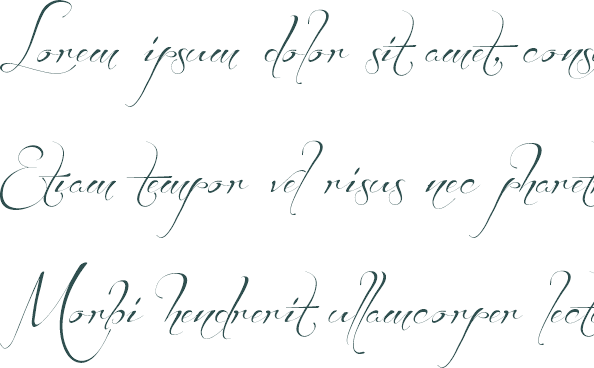 Lorem ipsum dolor sit amet, cons
Etiam tempor vel risus nec pharet
Morbi hendrerit ullamcorper lect